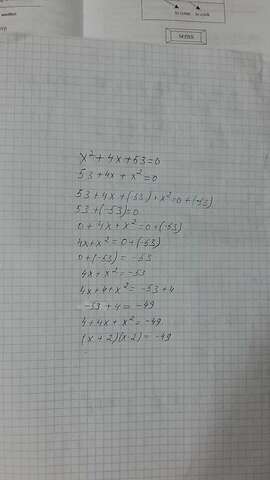 NOTES
x² + 4x + 53 = 0
53 + 4x + x² = 0
53 + 4x + (-53) + x² = 0 + (-53)
53 + (-53) = 0
0 + 4x + x² = 0 + (-53)
4x + x² = 0 + (-53)
0 + (-53) = -53
4x + x² = -53
4x + 4 + x² = -53 + 4
-53 + 4 = -49
4 + 4x + x² = -49
(x + 2)(x - 2) = -49